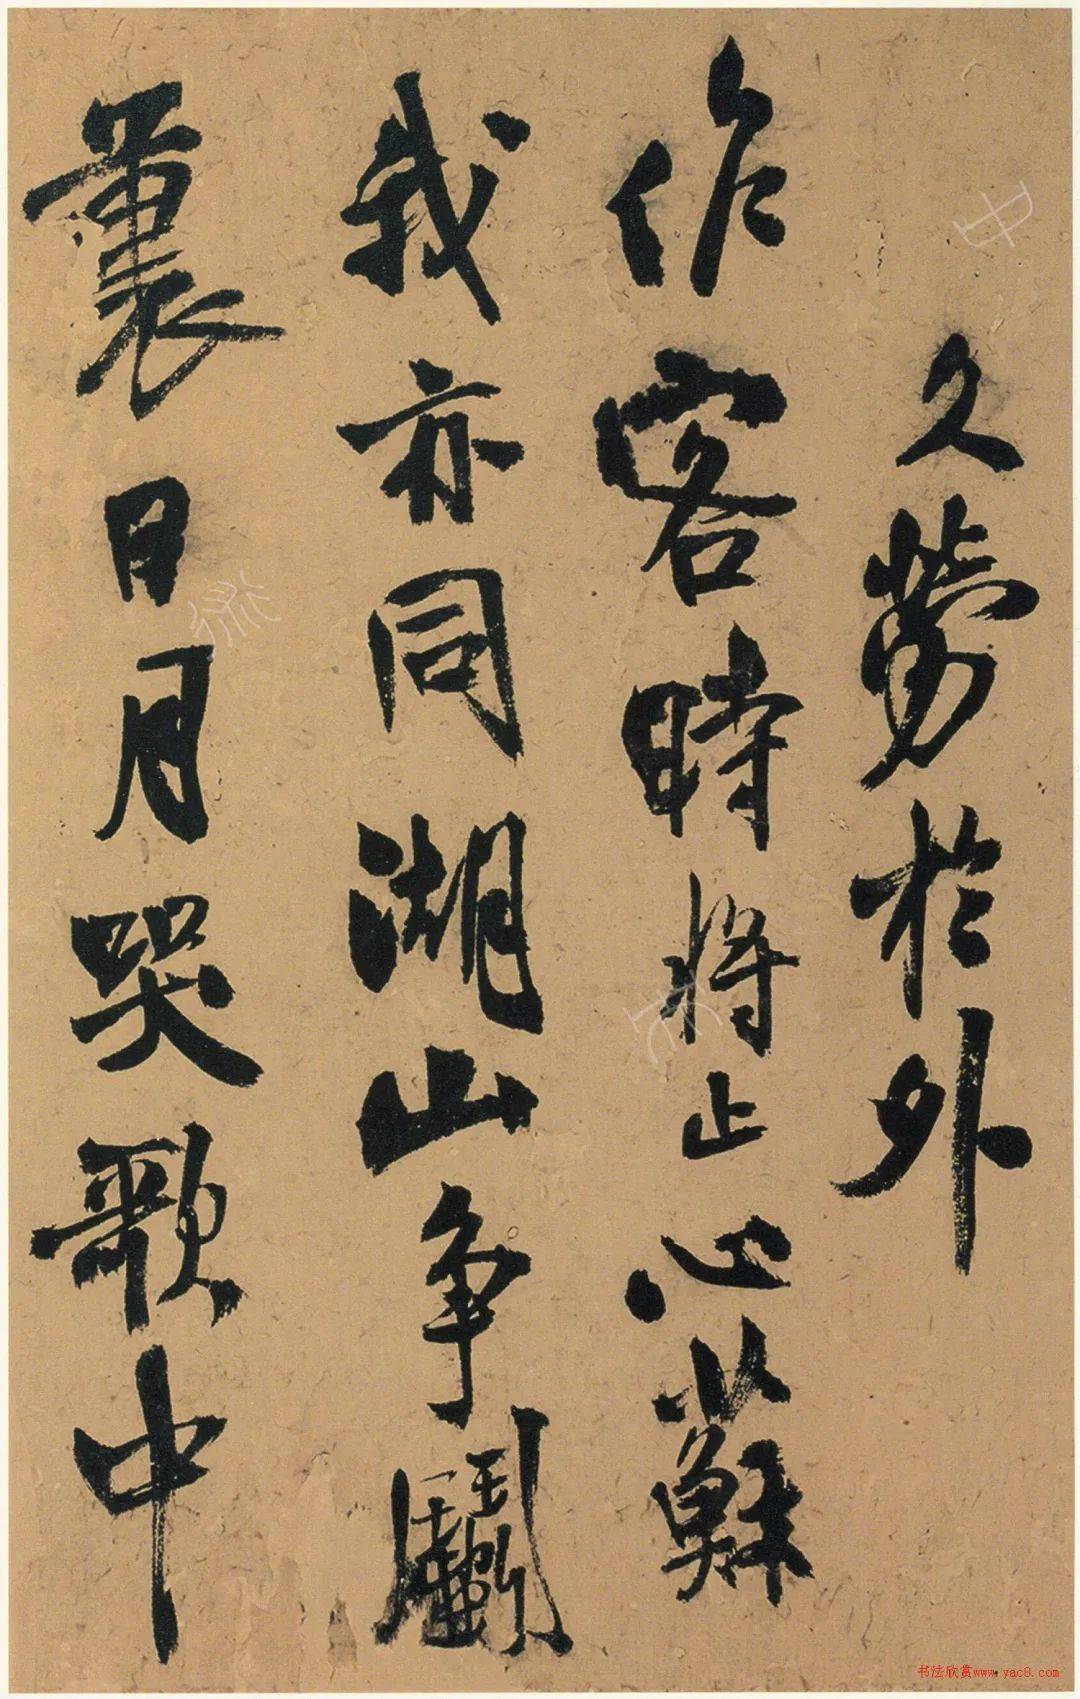 久勞於外
作客時將止心蘇
我亦同湖山争鬭
裏日月哭歌中
书法欣赏www.yac8.com